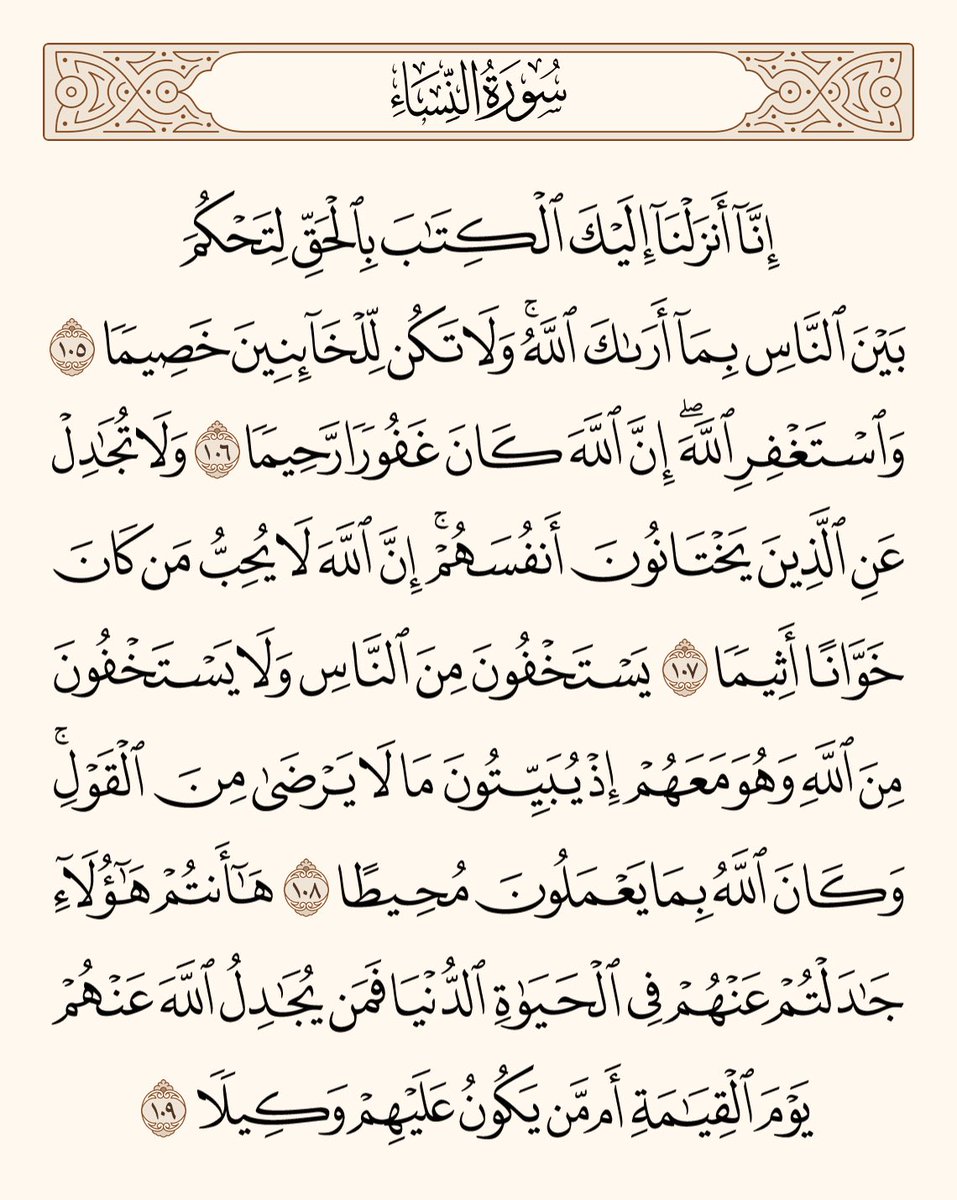 سُورَةُ النِّسَاءِ
إِنَّآ أَنزَلْنَآ إِلَيْكَ ٱلْكِتَٰبَ بِٱلْحَقِّ لِتَحْكُمَ
بَيْنَ ٱلنَّاسِ بِمَآ أَرَىٰكَ ٱللَّهُۚ وَلَا تَكُن لِّلْخَآئِنِينَ خَصِيمًا ١٠٥
وَٱسْتَغْفِرِ ٱللَّهَۖ إِنَّ ٱللَّهَ كَانَ غَفُورًا رَّحِيمًا ١٠٦ وَلَا تُجَٰدِلْ
عَنِ ٱلَّذِينَ يَخْتَانُونَ أَنفُسَهُمْۚ إِنَّ ٱللَّهَ لَا يُحِبُّ مَن كَانَ
خَوَّانًا أَثِيمًا ١٠٧ يَسْتَخْفُونَ مِنَ ٱلنَّاسِ وَلَا يَسْتَخْفُونَ
مِنَ ٱللَّهِ وَهُوَ مَعَهُمْ إِذْ يُبَيِّتُونَ مَا لَا يَرْضَىٰ مِنَ ٱلْقَوْلِۚ
وَكَانَ ٱللَّهُ بِمَا يَعْمَلُونَ مُحِيطًا ١٠٨ هَٰٓأَنتُمْ هَٰٓؤُلَآءِ
جَٰدَلْتُمْ عَنْهُمْ فِى ٱلْحَيَوٰةِ ٱلدُّنْيَا فَمَن يُجَٰدِلُ ٱللَّهَ عَنْهُمْ
يَوْمَ ٱلْقِيَٰمَةِ أَم مَّن يَكُونُ عَلَيْهِمْ وَكِيلًا ١٠٩